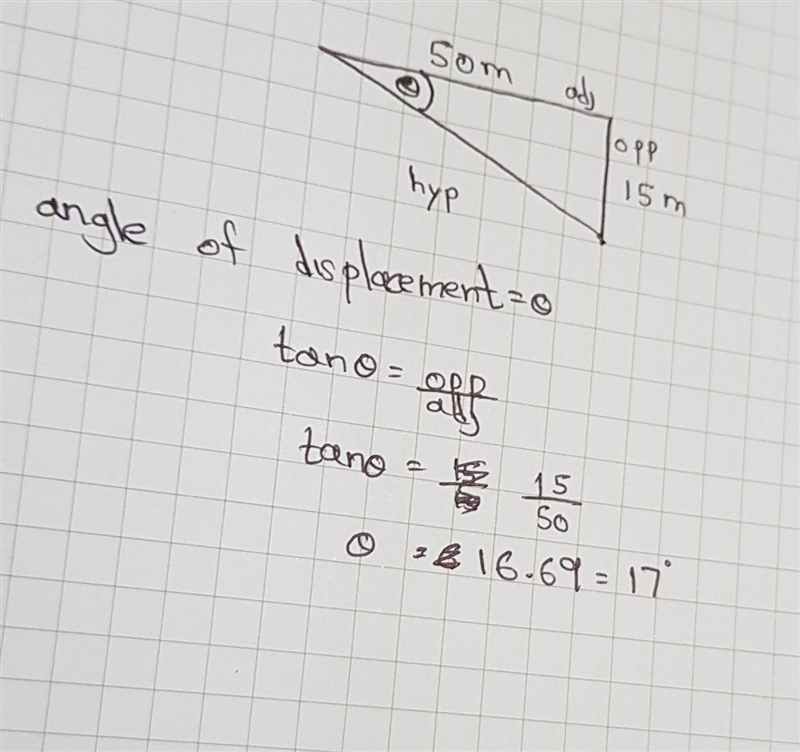 50m adj
θ
opp
15m
hyp
angle of displacement = θ
tanθ = opp/adj
tanθ = 15/50
θ = 16.69 = 17°